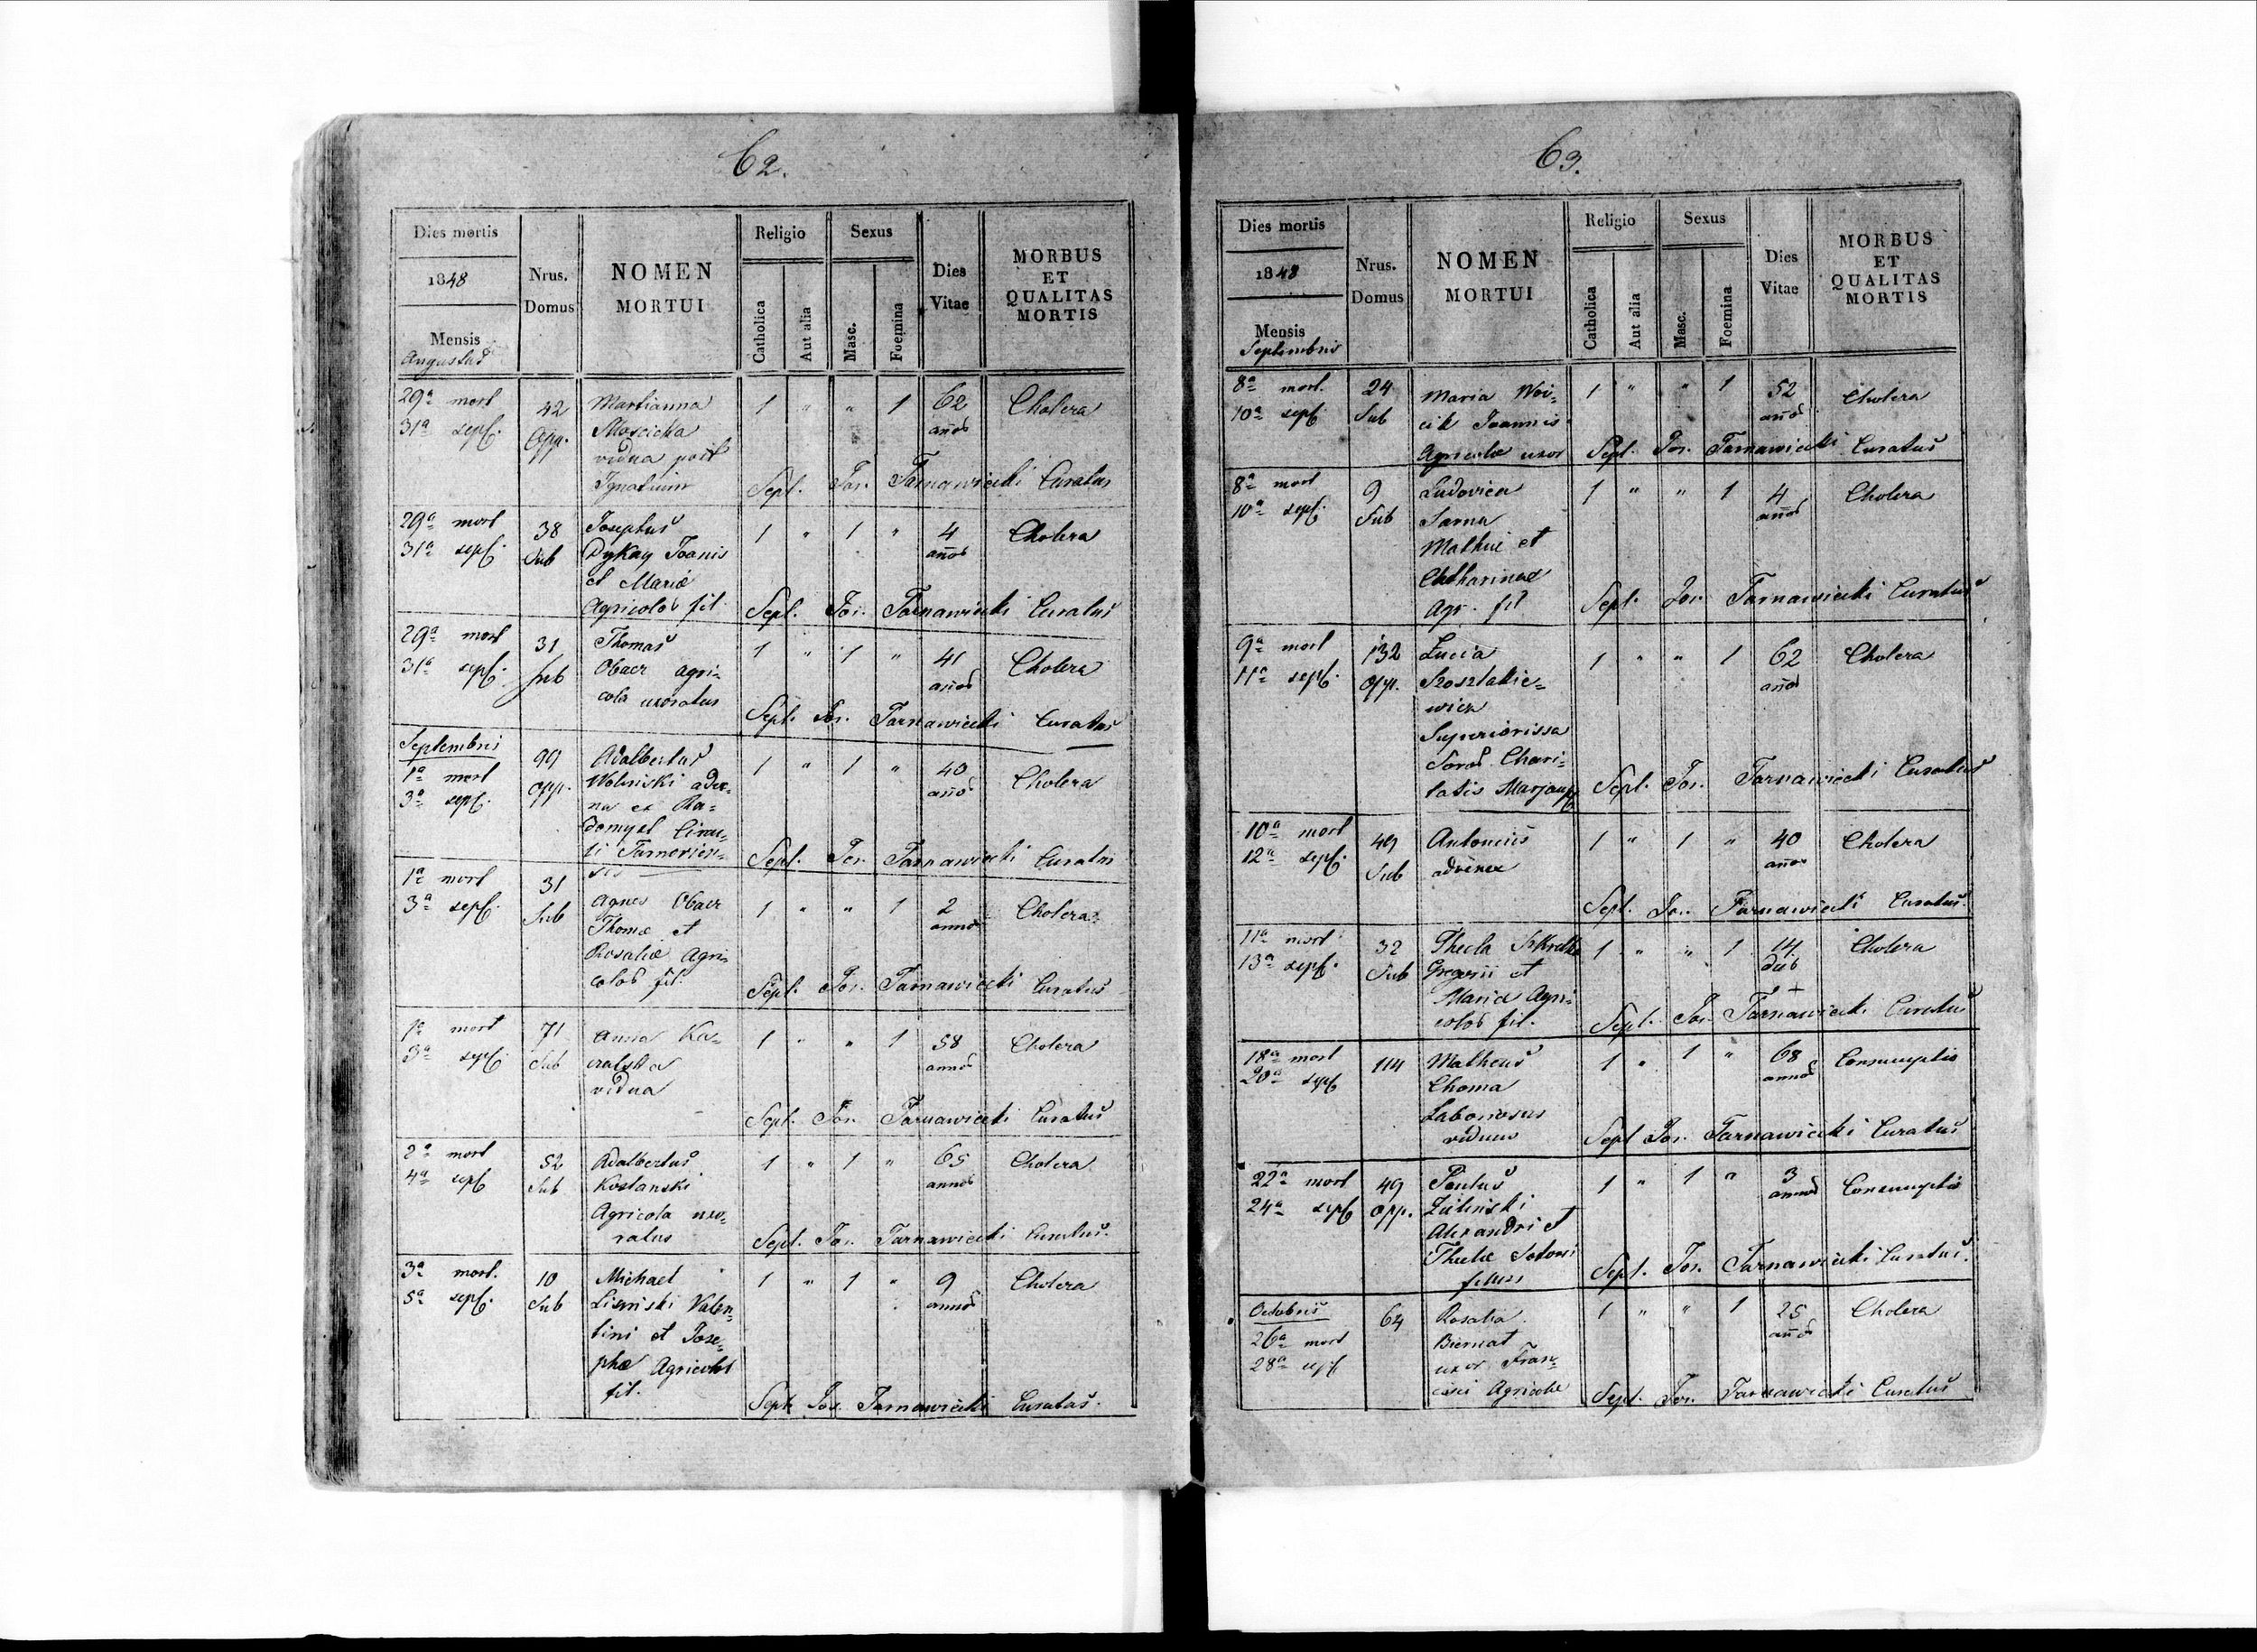 62.
Dies mortis
1848
Mensis
Augustus
Nrus.
Domus
NOMEN
MORTUI
Religio
Catholica
Aut alia
Sexus
Masc.
Foemina
Dies
Vitae
MORBUS
ET
QUALITAS
MORTIS
29a mort 42 Marianna 1 " " 1 62 Cholera
31a sepl. opp. Moscicka anos
vidua post
Ignatium Sepl. Jos. Tarnawiecki Curatus
29a mort 38 Josephus 1 " 1 " 4 Cholera
31a sepl. Sub Dykay Joanis anos
et Mariæ
Agricolos fil. Sepl. Jos. Tarnawiecki Curatus
29a mort 31 Thomas 1 " 1 " 41 Cholera
31a sepl. Sub Obacr agri= anos
cola uxoratus Sepl. Jos. Tarnawiecki Curatus
Septembris
1a mort 99 Adalbertus 1 " 1 " 40 Cholera
3a sepl. opp. Wolinski adve= anos
na ex Ra=
domysl Circu=
li Tarnovien= Sepl. Jos. Tarnawiecki Curatus
sis
1a mort 31 Agnes Obacr 1 " " 1 2 Cholera
3a sepl. Sub Thomæ et annos
Rosaliæ Agri=
colos fil. Sepl. Jos. Tarnawiecki Curatus
1a mort 71 Anna Ka= 1 " " 1 58 Cholera
3a sepl. Sub annos
vidua
Sepl. Jos. Tarnawiecki Curatus
2a mort 52 Adalbertus 1 " 1 " 65 Cholera
4a sepl Sub Koslanski annos
Agricola uxo=
ratus Sepl. Jos. Tarnawiecki Curatus.
3a mort. 10 Michael 1 " 1 " 9 Cholera
5a sepl. Sub Valen= annos
tini et Jose=
phæ Agricolos
fil. Sepl. Jos. Tarnawiecki Curatus.
63.
Dies mortis
1848
Mensis
Septembris
Nrus.
Domus
NOMEN
MORTUI
Religio
Catholica
Aut alia
Sexus
Masc.
Foemina
Dies
Vitae
MORBUS
ET
QUALITAS
MORTIS
8a mort. 24 Maria Woi= 1 " " 1 52 Cholera
10a sepl. Sub cik Joannis anos
Agricolæ uxor Sepl. Jos. Tarnawiecki Curatus
8a mort 9 Ludovica 1 " " 1 4 Cholera
10a sepl. Sub Sarna anos
Mathei et
Catharinae
Agr. fil Sepl. Jos. Tarnawiecki Curatus
9a mort 132 Lucia 1 " " 1 62 Cholera
11a sepl. opp. Szostakie= anos
wicz
Superiorissa
Soros Chari=
tatis Sepl. Jos. Tarnawiecki Curatus
10a mort 49 Antonius 1 " 1 " 40 Cholera
12a sepl. Sub advena anos
Sepl. Jos. Tarnawiecki Curatus.
11a mort 32 Thecla 1 " " 1 14 Cholera
13a sepl. Sub Gregorii et dies
Mariæ Agri= +
colos fil. Sepl. Jos. Tarnawiecki Curatus
18a mort 114 Matheus 1 " 1 " 68 Consumptio
20a sepl Choma annos
Laboriosus
viduus Sepl Jos. Tarnawiecki Curatus
22a mort 49 Paulus 1 " 1 " 3 Consumptio
24a sepl opp. Zielinski annos
Alexandri et
Theclæ
filius Sepl. Jos. Tarnawiecki Curatus.
Octobris
26a mort 64 Rosalia 1 " " 1 25 Cholera
28a sepl Biernat anos
uxor Fran=
cisci Agricolæ Sepl. Jos. Tarnawiecki Curatus